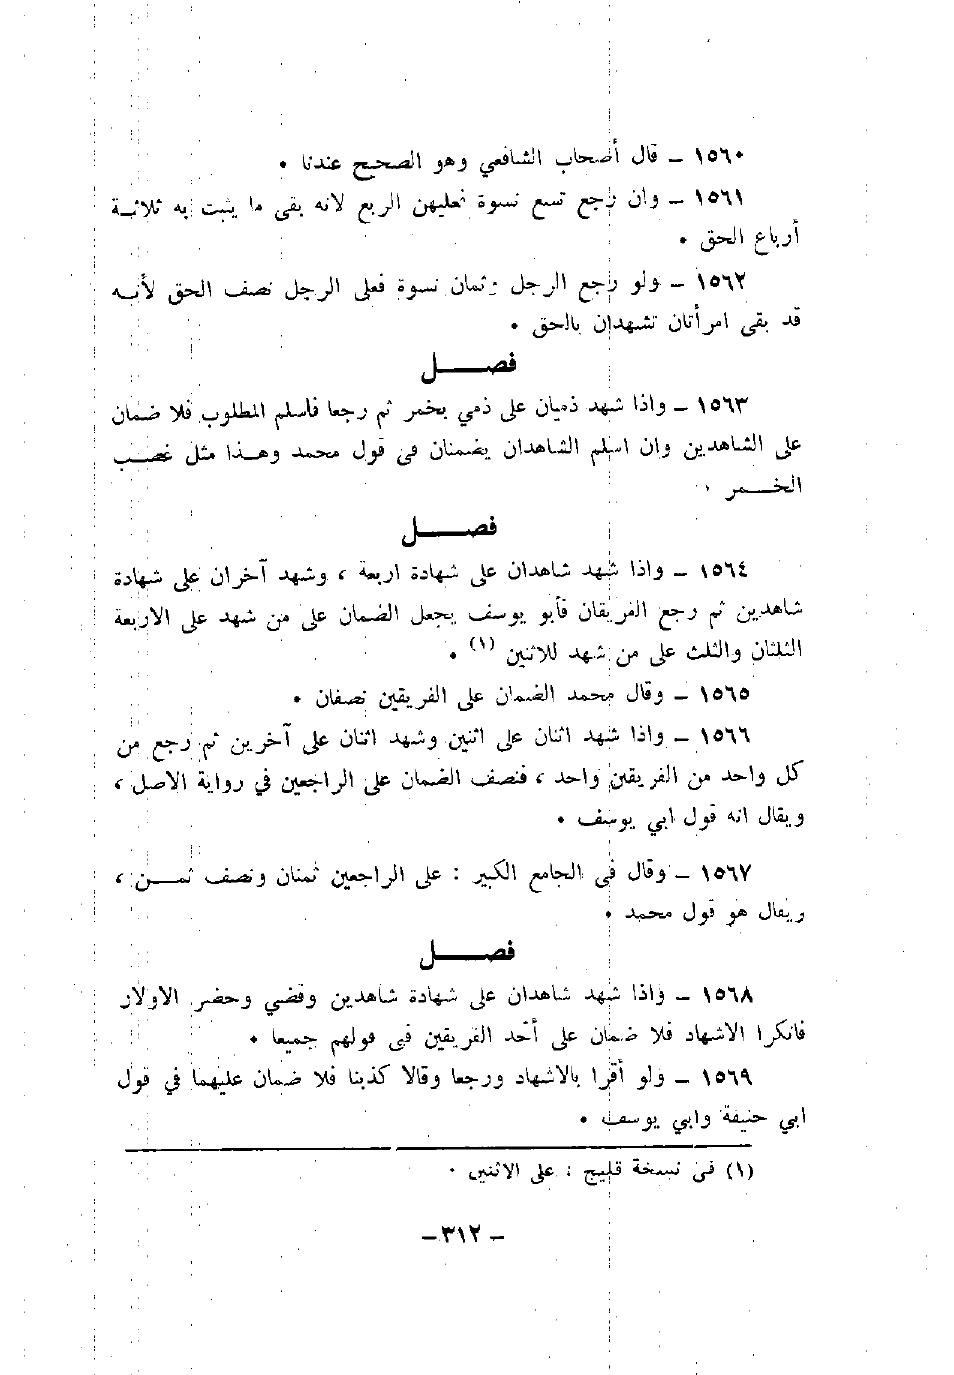 ١٥٦٠ – قال أصحاب الشافعي وهو الصحيح عندنا •
١٥٦١ – وان رجع تسع نسوة فعليهن الربع لانه بقى ما يثبت به ثلاثـة
أرباع الحق •
١٥٦٢ – ولو رجع الرجل وثمان نسوة فعلى الرجل نصف الحق لأنـه
قد بقى امرأتان تشهدان بالحق •
فصـــــل
١٥٦٣ – واذا شهد ذميان على ذمي بخمر ثم رجعا فاسلم المطلوب فلا ضمان
على الشاهدين وان اسلم الشاهدان يضمنان فى قول محمد وهـذا مثل غصـب
الخـــمر •
فصـــــل
١٥٦٤ – واذا شهد شاهدان على شهادة اربعة ، وشهد آخران على شهادة
شاهدين ثم رجع الفريقان فأبو يوسف يجعل الضمان على من شهد على الاربعة
الثلثان والثلث على من شهد للاثنين (١) •
١٥٦٥ – وقال محمد الضمان على الفريقين نصفان •
١٥٦٦ – واذا شهد اثنان على اثنين وشهد اثنان على آخرين ثم رجع من
كل واحد من الفريقين واحد ، فنصف الضمان على الراجعين في رواية الاصل ،
ويقال انه قول ابي يوسف •
١٥٦٧ – وقال فى الجامع الكبير : على الراجعين ثمنان ونصف ثمــن ،
ويقال هو قول محمد •
فصـــــل
١٥٦٨ – واذا شهد شاهدان على شهادة شاهدين وقضي وحضر الاولان
فانكرا الاشهاد فلا ضمان على أحد الفريقين فى قولهم جميعا •
١٥٦٩ – ولو أقرا بالاشهاد ورجعا وقالا كذبنا فلا ضمان عليهما في قول
ابي حنيفة وابي يوسف •
(١) فى نسخة قليج : على الاثنين •
– ٣١٢ –